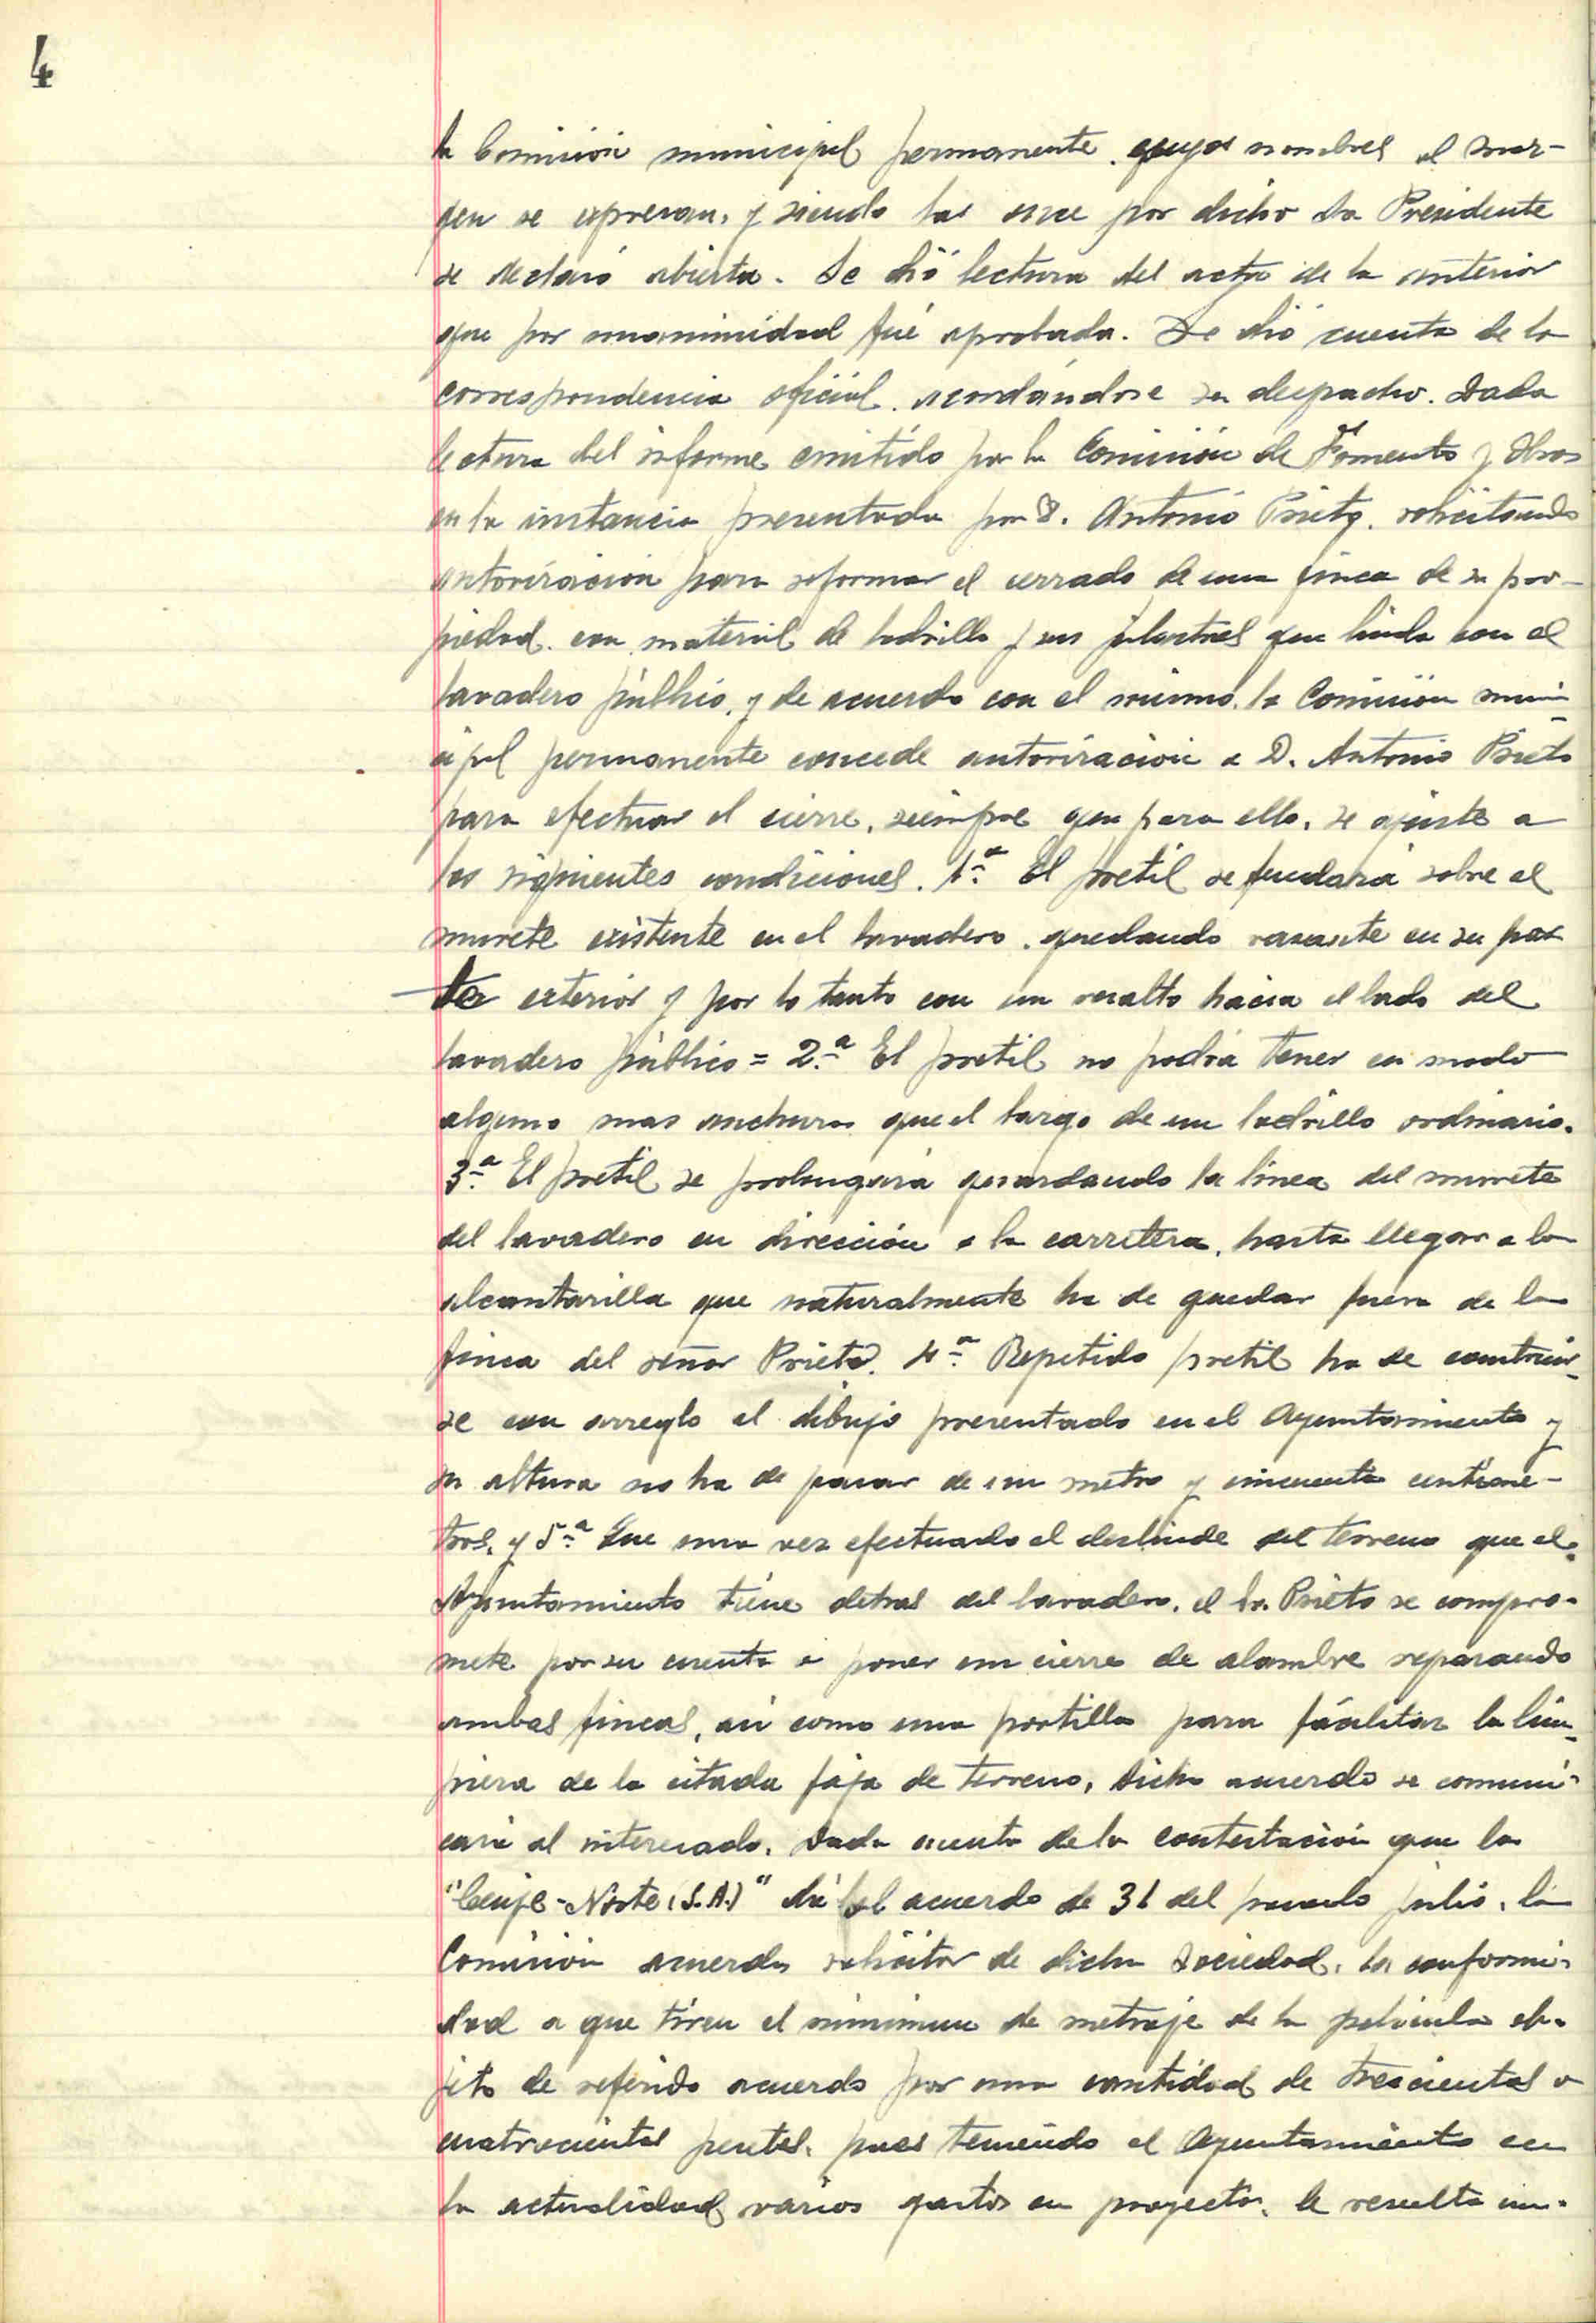 4
la Comisión municipal permanente, cuyos nombres al mar-
gen se expresan, y siendo las once por dicho Sr Presidente
se declaró abierta. Se dió lectura del acta de la anterior
que por unanimidad fué aprobada. Se dió cuenta de la
correspondencia oficial, acordándose su despacho. Dada
lectura del informe emitido por la Comisión de Fomento y Obras
en la instancia presentada por D. Antonio Prieto, solicitando
autorización para reformar el cerrado de una finca de su pro-
piedad, con material de ladrillo y sus pilastras que linda con el
lavadero público, y de acuerdo con el mismo, la Comisión muni-
cipal permanente concede autorización a D. Antonio Prieto
para efectuar el cierre, siempre que para ello, se ajuste a
las siguientes condiciones. 1.ª El pretil se fundará sobre el
murete existente en el lavadero, quedando rasante en su par
te exterior y por lo tanto con un resalto hacia el lado del
lavadero público = 2.ª El pretil no podrá tener en modo
alguno mas anchura que el largo de un ladrillo ordinario.
3.ª El pretil se prolongará guardando la línea del murete
del lavadero en dirección a la carretera, hasta llegar a la
alcantarilla que naturalmente ha de quedar fuera de la
finca del señor Prieto. 4.ª Repetido pretil ha de construir-
se con arreglo al dibujo presentado en el Ayuntamiento y
su altura no ha de pasar de un metro y cincuenta centíme-
tros, y 5.ª Que una vez efectuado el deslinde del terreno que el
Ayuntamiento tiene detras del lavadero, el Sr. Prieto se compro-
mete por su cuenta a poner un cierre de alambre separando
ambas fincas, asi como una portilla para facilitar la lim-
pieza de la citada faja de terreno, dicho acuerdo se comuni-
cará al interesado. Dada cuenta de la contestación que la
"Ceupe-Norte (S.A.)" dá al acuerdo de 31 del pasado julio, la
Comisión acuerda solicitar de dicha Sociedad, la conformi-
dad a que tiren el minimum de metraje de la película ob-
jeto de referido acuerdo por una cantidad de trescientas o
cuatrocientas pesetas, pues teniendo el Ayuntamiento en
la actualidad varios gastos en proyecto, le resulta im-